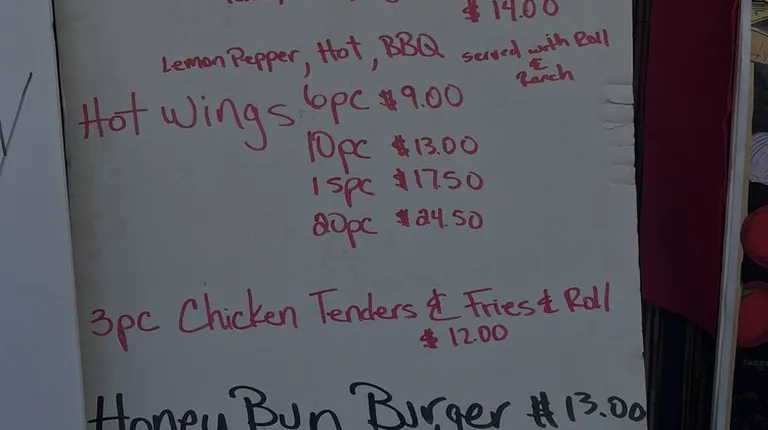 $14.00
Lemon Pepper, Hot, BBQ served with Roll
& Ranch
Hot Wings 6pc $9.00
10pc $13.00
15pc $17.50
20pc $24.50
3pc Chicken Tenders & Fries & Roll
$12.00
Honey Bun Burger $13.00